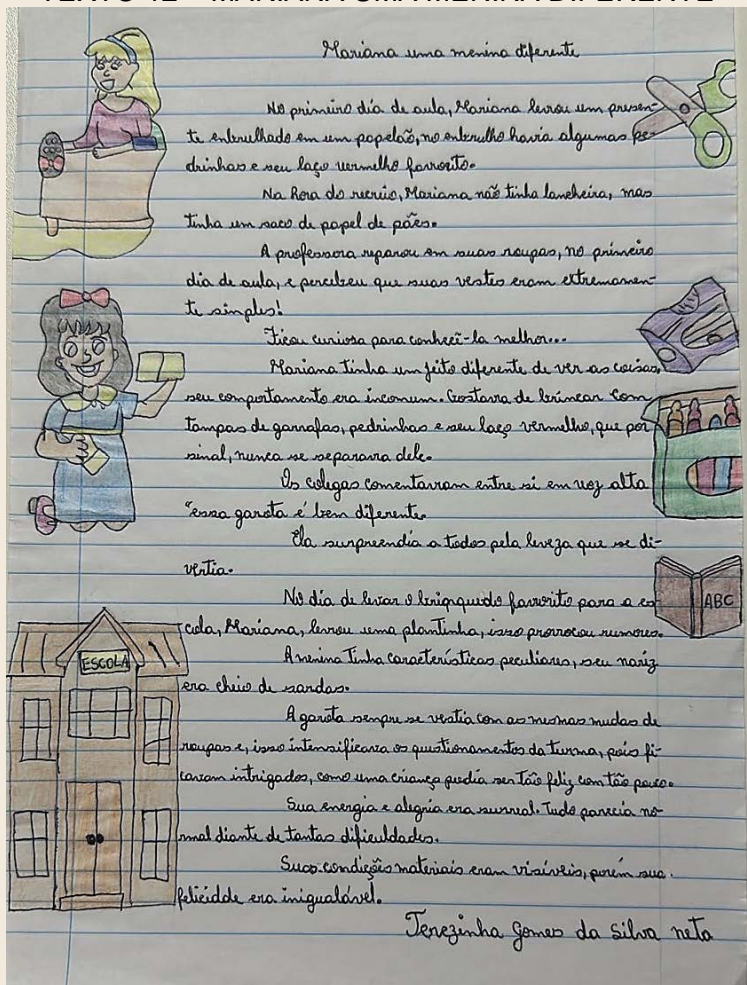 Mariana uma menina diferente
No primeiro dia de aula, Mariana levou um presen-
te embrulhado em um papelão, no embrulho havia algumas pe-
drinhas e seu laço vermelho favorito.
Na hora do recreio, Mariana não tinha lancheira, mas
tinha um saco de papel de pães.
A professora reparou em suas roupas, no primeiro
dia de aula, e percebeu que suas vestes eram extremamen-
te simples!
Ficou curiosa para conhecê-la melhor...
Mariana tinha um jeito diferente de ver as coisas,
seu comportamento era incomum. Gostava de brincar com
tampas de garrafas, pedrinhas e seu laço vermelho, que por
sinal, nunca se separava dele.
Os colegas comentavam entre si em voz alta
"essa garota é bem diferente.
Ela surpreendia a todos pela leveza que se di-
vertia.
No dia de levar o brinquedo favorito para a es-
cola, Mariana, levou uma plantinha, isso provocou rumores.
A menina tinha características peculiares, seu nariz
era cheio de sardas.
A garota sempre se vestia com as mesmas mudas de
roupas e, isso intensificava os questionamentos da turma, pois fi-
cavam intrigados, como uma criança podia ser tão feliz com tão pouco.
Sua energia e alegria era surreal. Tudo parecia no-
rmal diante de tantas dificuldades.
Suas condições materiais eram visíveis, porém sua
felicidde era inigualável.
Terezinha Gomes da Silva neta
ESCOLA
ABC